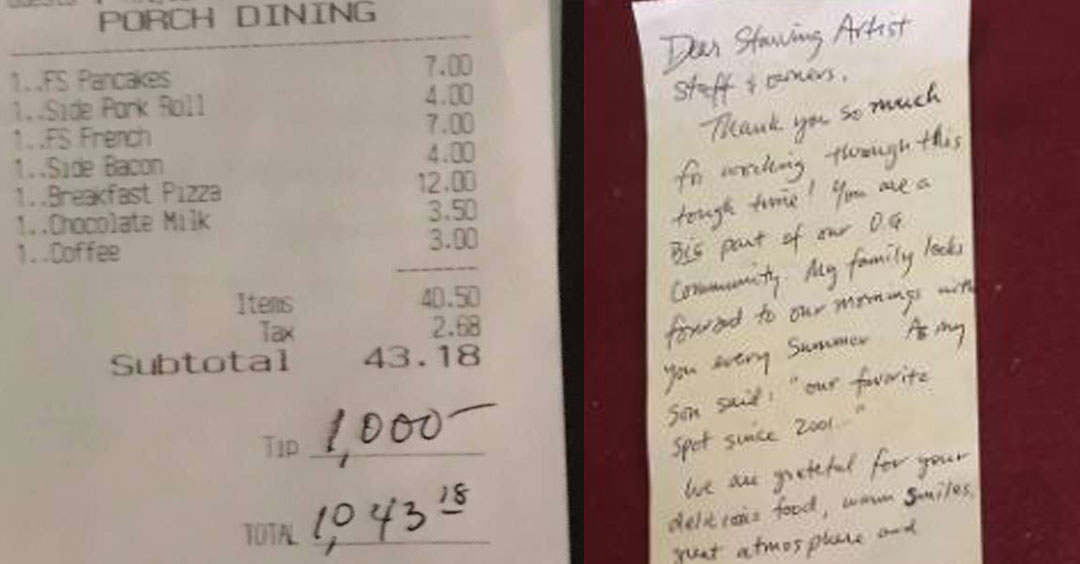 PORCH DINING
1..FS Pancakes 7.00
1..Side Pork Roll 4.00
1..FS French 7.00
1..Side Bacon 4.00
1..Breakfast Pizza 12.00
1..Chocolate Milk 3.50
1..Coffee 3.00
Items 40.50
Tax 2.68
Subtotal 43.18
Tip 1,000
TOTAL 1,043 18
Dear Starving Artist
Staff & owners,
Thank you so much
for working through this
tough time! You are a
BIG part of our O.G
Community. My family looks
forward to our mornings with
you every summer. As my
son said: "our favorite
spot since 2001."
We are grateful for your
delicious food, warm smiles,
great atmosphere and